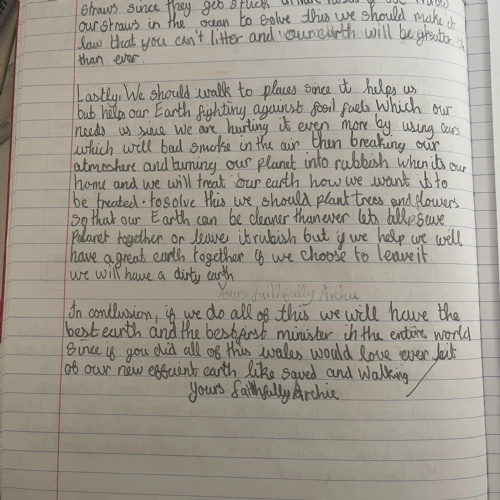 straws since they get stuck in
our straws in the ocean to solve this we should make it
law that you can't litter and our earth will be greater
than ever.
Lastly, We should walk to places since it helps us
but helps our Earth fighting against fosil fuels which our
needs us since we are hurting it even more by using cars
which will bad smoke in the air then breaking our
atmoshere and turning our planet into rubbish when its our
home and we will treat our earth how we want its to
be treated. to solve this we should plant trees and flowers
so that our Earth can be cleaner than ever lets all save
palanet together or leave it rubish but if we help we will
have a great earth together if we choose to leave it
we will have a dirty earth
Yours faithfully Archie
In conclusion, if we do all of this we will have the
best earth and the best first minister in the entire world
since if you did all of this wales would love ever bit
of our new effcient earth like saved and walking
Yours faithfully Archie